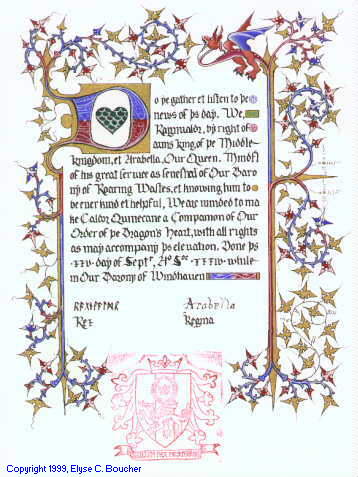 Do ye gather et listen to þe
news of þs day. We,
Ragnvaldr, by right of
arms king of þe Middle
kingdom, et Arabella, Our Queen. Mindfl
of his great service as of Our Baro
ny of Roaring Wastes, et knowing him to
be ever kind et helpful, We are minded to ma
ke a Companion of Our
Order of þe Dragon's Heart, with all rights
as may accompany þs elevation. Done þs
·xxv· day of Septr, ·xxxiv· while
in Our Barony of Windhaven
Arabella
Rex Regina
Copyright 1999, Elyse C. Boucher